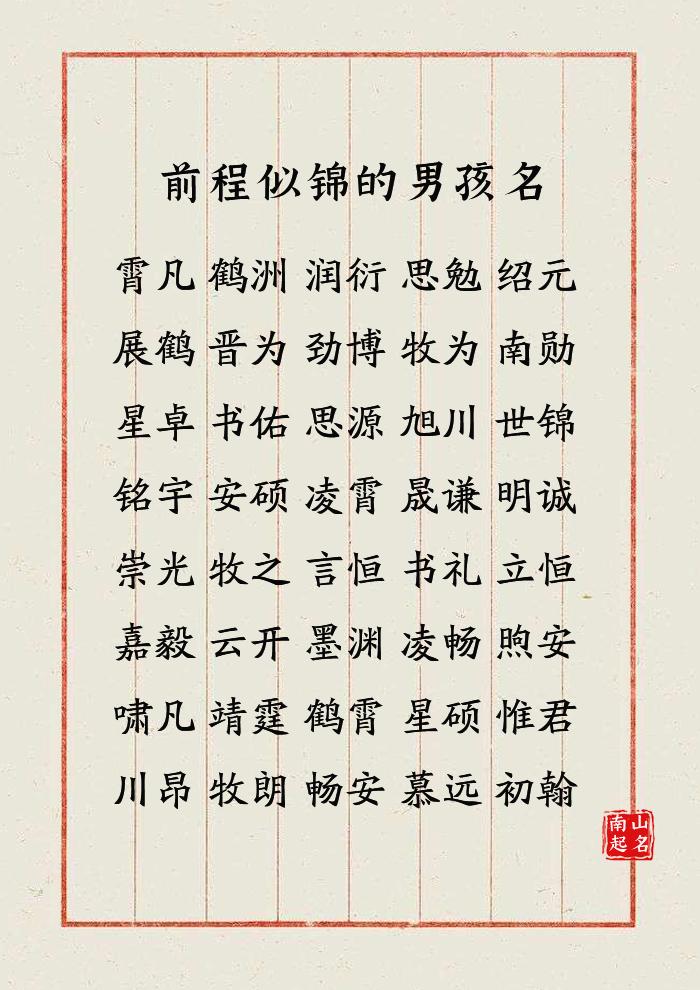 前程似锦的男孩名
霄凡 鹤洲 润衍 思勉 绍元
展鹤 晋为 劲博 牧为 南勋
星卓 书佑 思源 旭川 世锦
铭宇 安硕 凌霄 晟谦 明诚
崇光 牧之 言恒 书礼 立恒
嘉毅 云开 墨渊 凌畅 煦安
啸凡 靖霆 鹤霄 星硕 惟君
川昂 牧朗 畅安 慕远 初翰
南山
起名